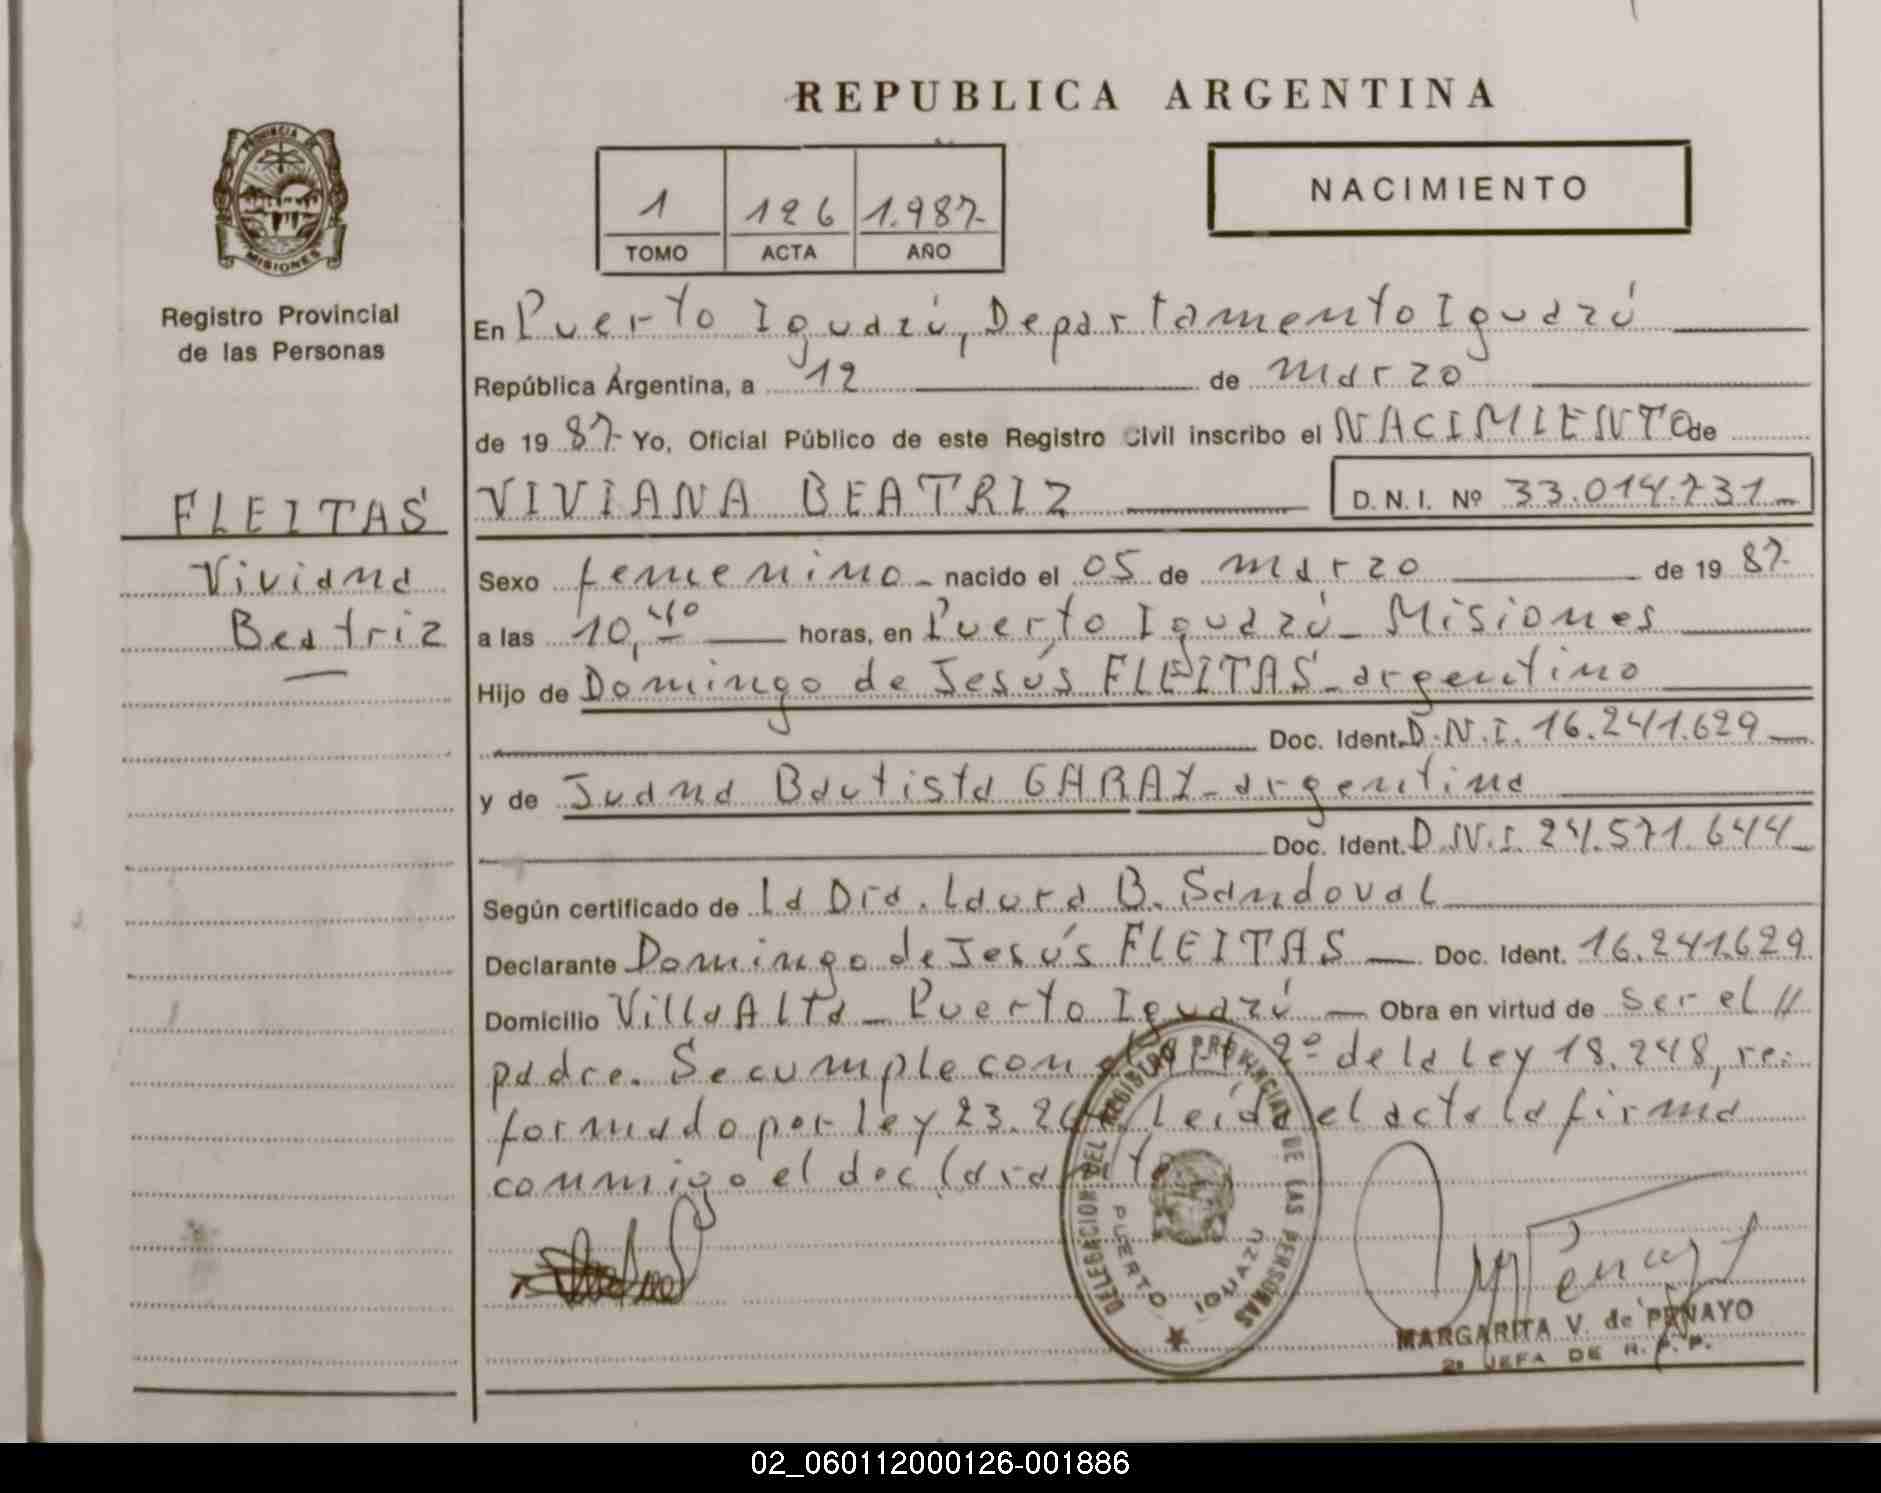 REPUBLICA ARGENTINA
PROVINCIA DE
MISIONES
Registro Provincial
de las Personas
1 126 1.987
TOMO ACTA AÑO
NACIMIENTO
En Puerto Iguazú, Departamento Iguazú
República Argentina, a 12 de marzo
de 1987 Yo, Oficial Público de este Registro Civil inscribo el NACIMIENTO de
VIVIANA BEATRIZ D. N. I. Nº 33.014.731
FLEITAS
Viviana
Beatriz
Sexo femenino nacido el 05 de marzo de 1987
a las 10,40 horas, en Puerto Iguazú Misiones
Hijo de Domingo de Jesús FLEITAS argentino
Doc. Ident. D.N.I. 16.241.629
y de Juana Bautista GARAY argentina
Doc. Ident. D.N.I. 24.571.644
Según certificado de La Dra. Laura B. Sandoval
Declarante Domingo de Jesús FLEITAS Doc. Ident. 16.241.629
Domicilio Villa Alta Puerto Iguazú Obra en virtud de ser el //
padre. Se cumple con 2º de la Ley 18.248, re-
formado por Ley Leída el acta la firma
conmigo el declarante
DELEGACION DEL REGISTRO PROVINCIAL DE LAS PERSONAS
PUERTO IGUAZU
MARGARITA V. de PENAYO
2ª JEFA DE R. P. P.
02_060112000126-001886